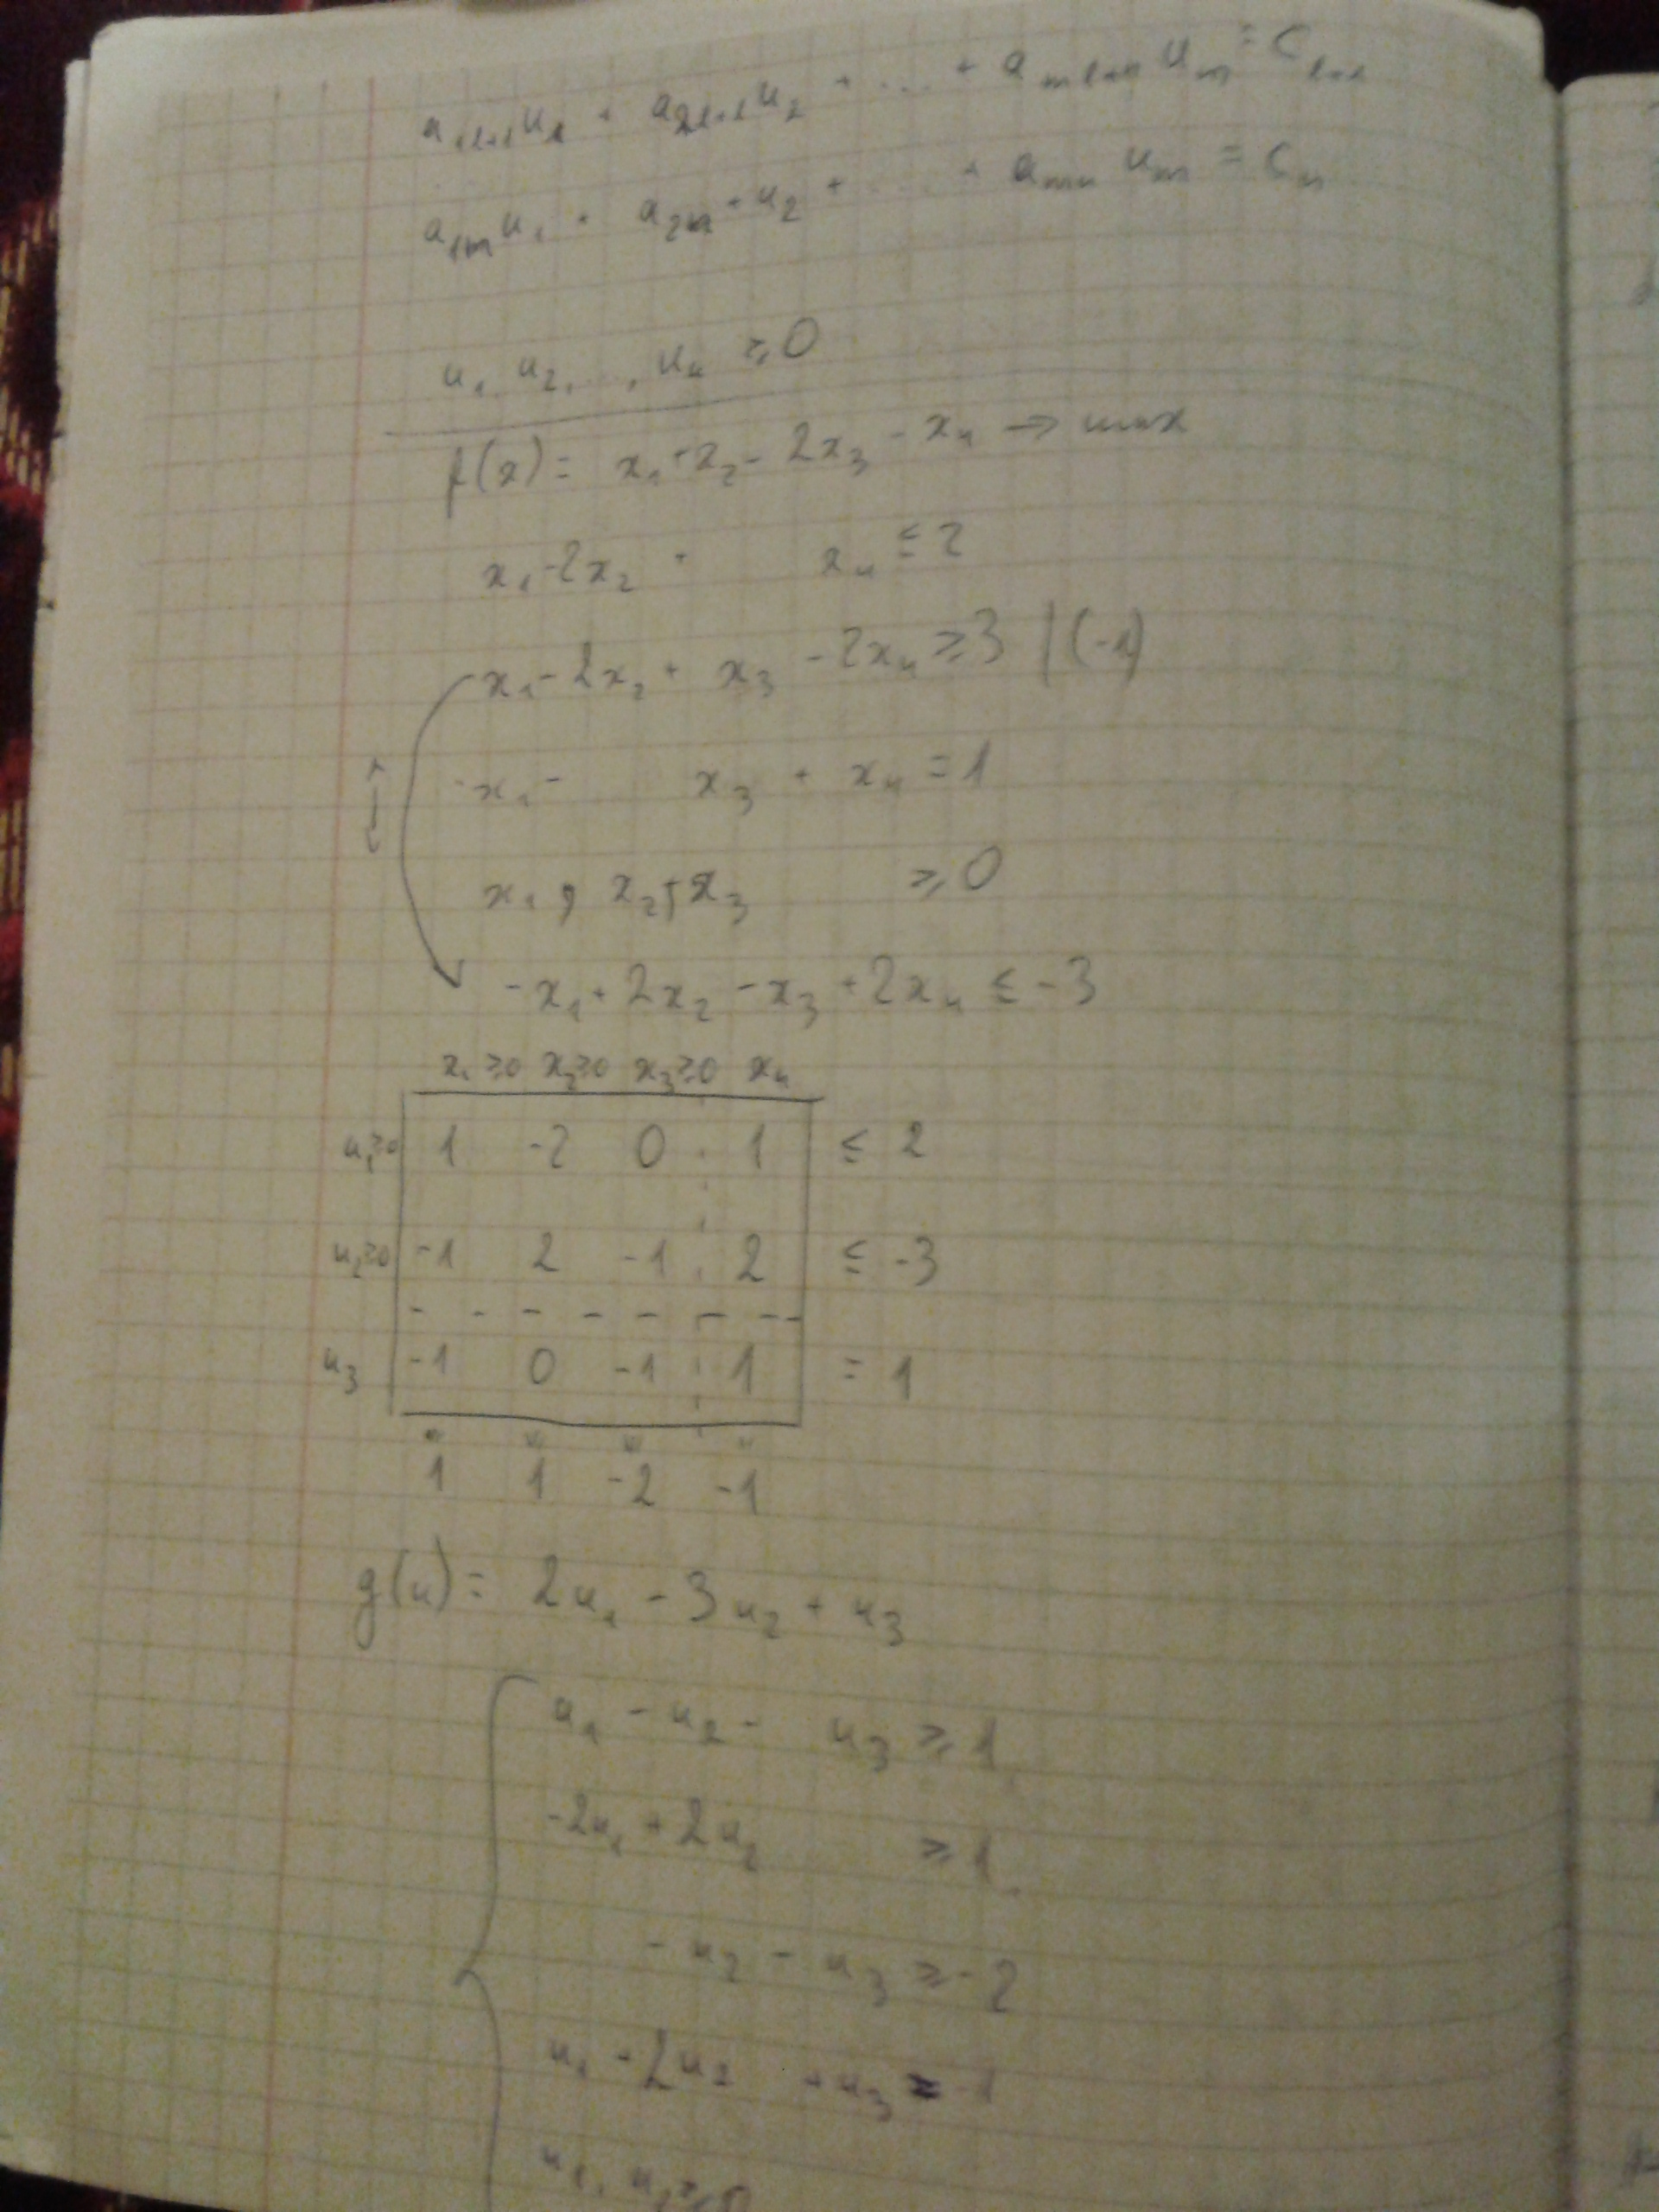 a₁ₗ₊₁u₁ + a₂ₗ₊₁u₂ + .... + aₘₗ₊₁ uₘ = cₗ₊₁
a₁ₙu₁ + a₂ₙ + u₂ + .... + aₘₙ uₘ = cₙ
u₁, u₂, ..., uₖ ≥ 0
f(x) = x₁ + x₂ - 2x₃ - x₄ → max
x₁ - 2x₂ + x₄ ≤ 2
x₁ - 2x₂ + x₃ - 2x₄ ≥ 3 | (-1)
-x₁ - x₃ + x₄ = 1
x₁, x₂, x₃ ≥ 0
-x₁ + 2x₂ - x₃ + 2x₄ ≤ -3
x₁ ≥ 0 x₂ ≥ 0 x₃ ≥ 0 x₄
u₁ ≥ 0 1 -2 0 1 ≤ 2
u₂ ≥ 0 -1 2 -1 2 ≤ -3
u₃ -1 0 -1 1 = 1
1 1 -2 -1
g(u) = 2u₁ - 3u₂ + u₃
u₁ - u₂ - u₃ ≥ 1
-2u₁ + 2u₂ ≥ 1
-u₂ - u₃ ≥ -2
u₁ + 2u₂ + u₃ = -1
u₁, u₂ ≥ 0